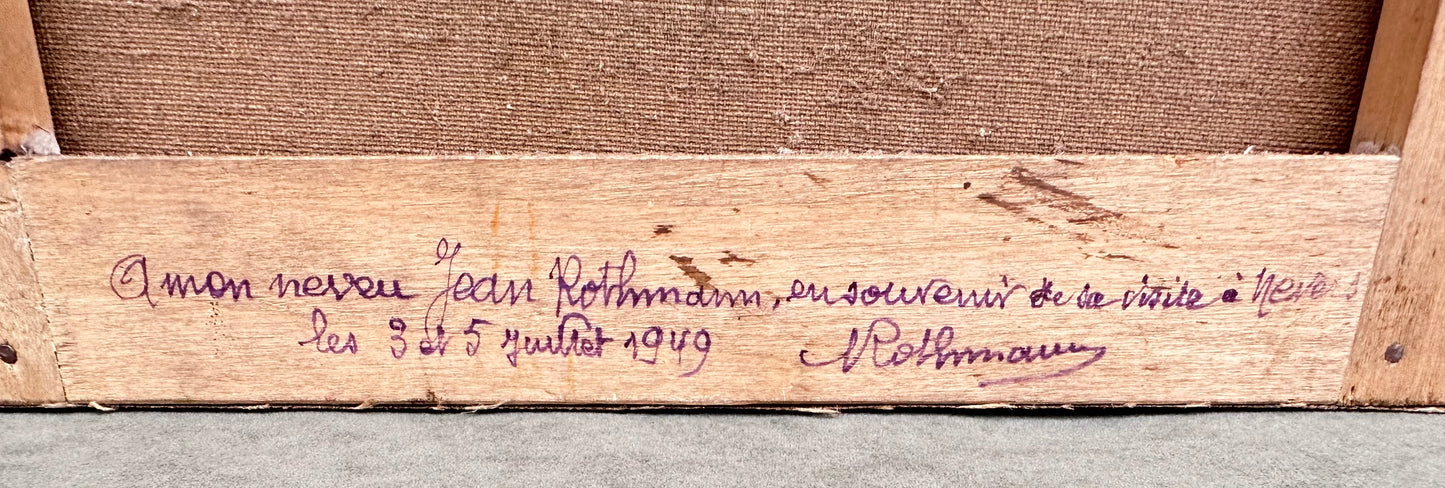 A mon neveu Jean Rothmann, en souvenir de sa visite à Nevers
les 3 et 5 Juillet 1949 Rothmann